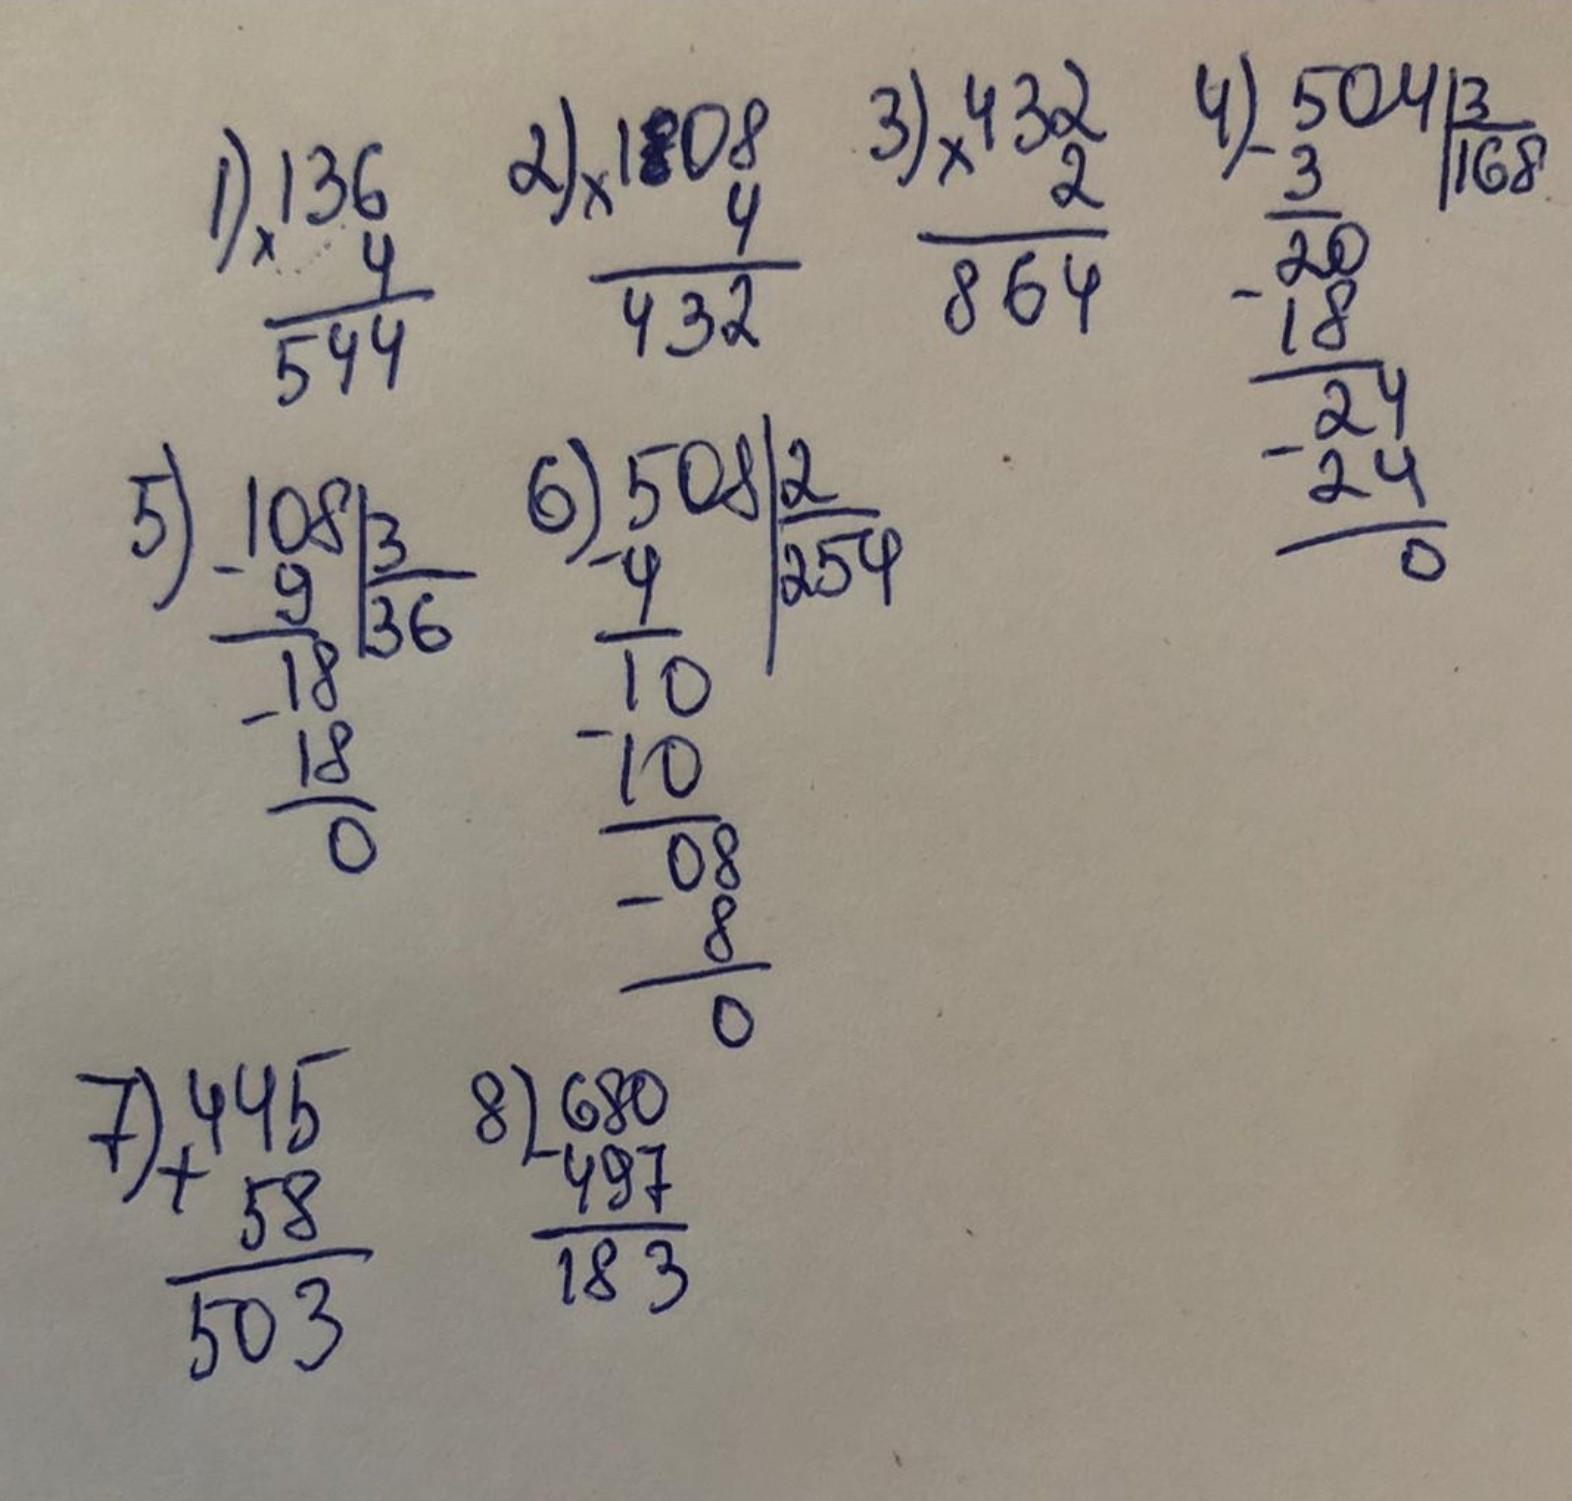 1) × 136
4
544
2) × 108
4
432
3) × 432
2
864
4) - 504 | 3
3 | 168
20
- 18
24
- 24
0
5) - 108 | 3
9 | 36
- 18
18
0
6) - 508 | 2
4 | 254
10
- 10
08
- 8
0
7) + 445
58
503
8) - 680
497
183